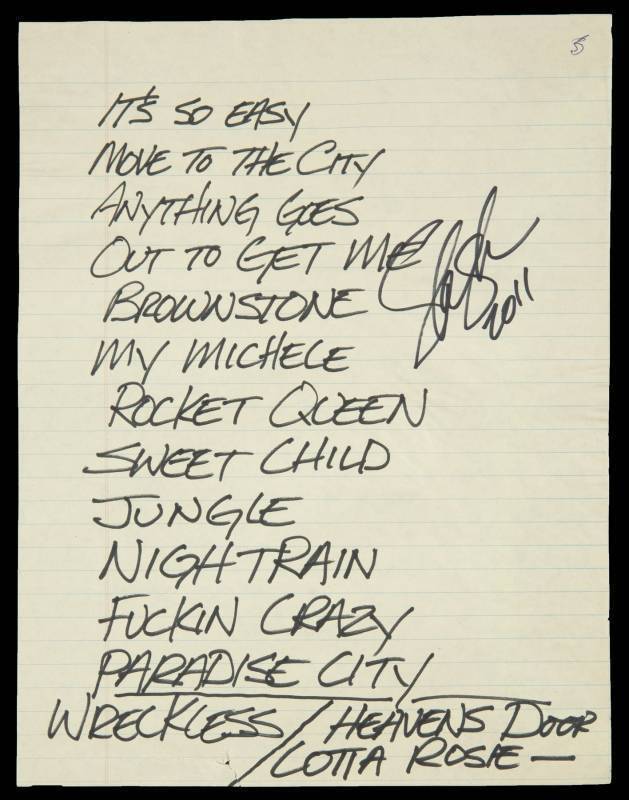 IT'S SO EASY
MOVE TO THE CITY
ANYTHING GOES
OUT TO GET ME
BROWNSTONE
MY MICHELE
ROCKET QUEEN
SWEET CHILD
JUNGLE
NIGHTRAIN
FUCKIN CRAZY
PARADISE CITY
WRECKLESS / HEAVENS DOOR
/ LOTTA ROSIE —
Slash
2011